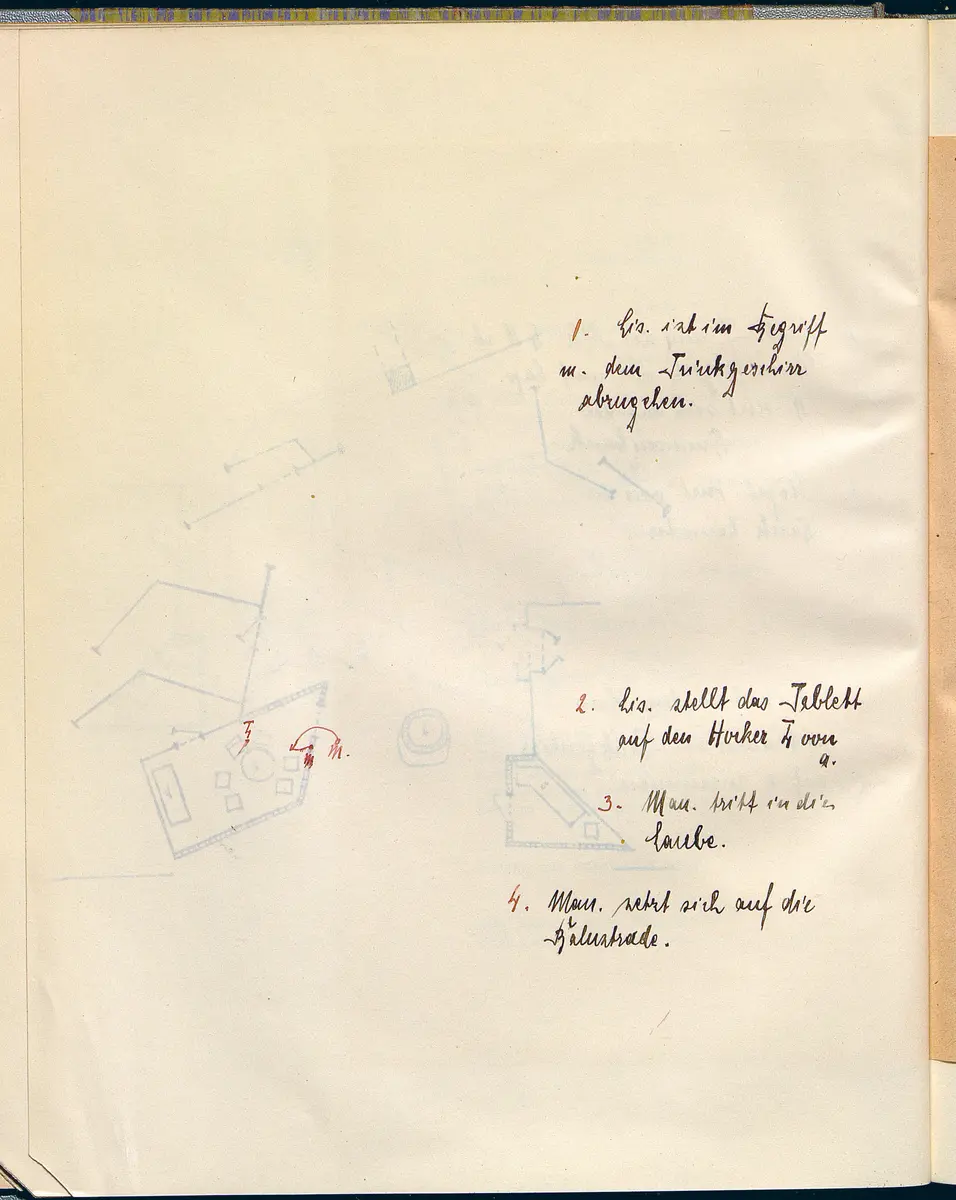 1. Lis. ist im Begriff
m. dem Trinkgeschirr
abzugehen.
2. Lis. stellt das Tablett
auf den Hocker von
a.
3. Man. tritt in die
Laube.
4. Man. setzt sich auf die
Balustrade.
M.